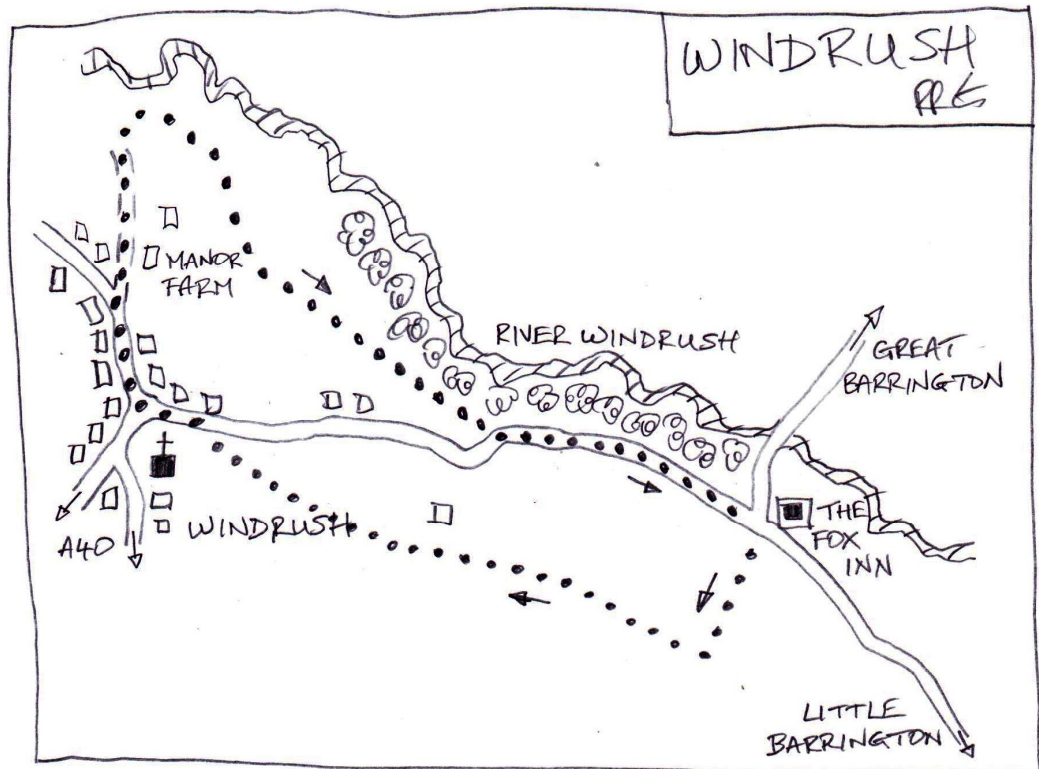 WINDRUSH
MANOR
FARM
RIVER WINDRUSH
GREAT
BARRINGTON
THE
FOX
INN
A40
WINDRUSH
LITTLE
BARRINGTON